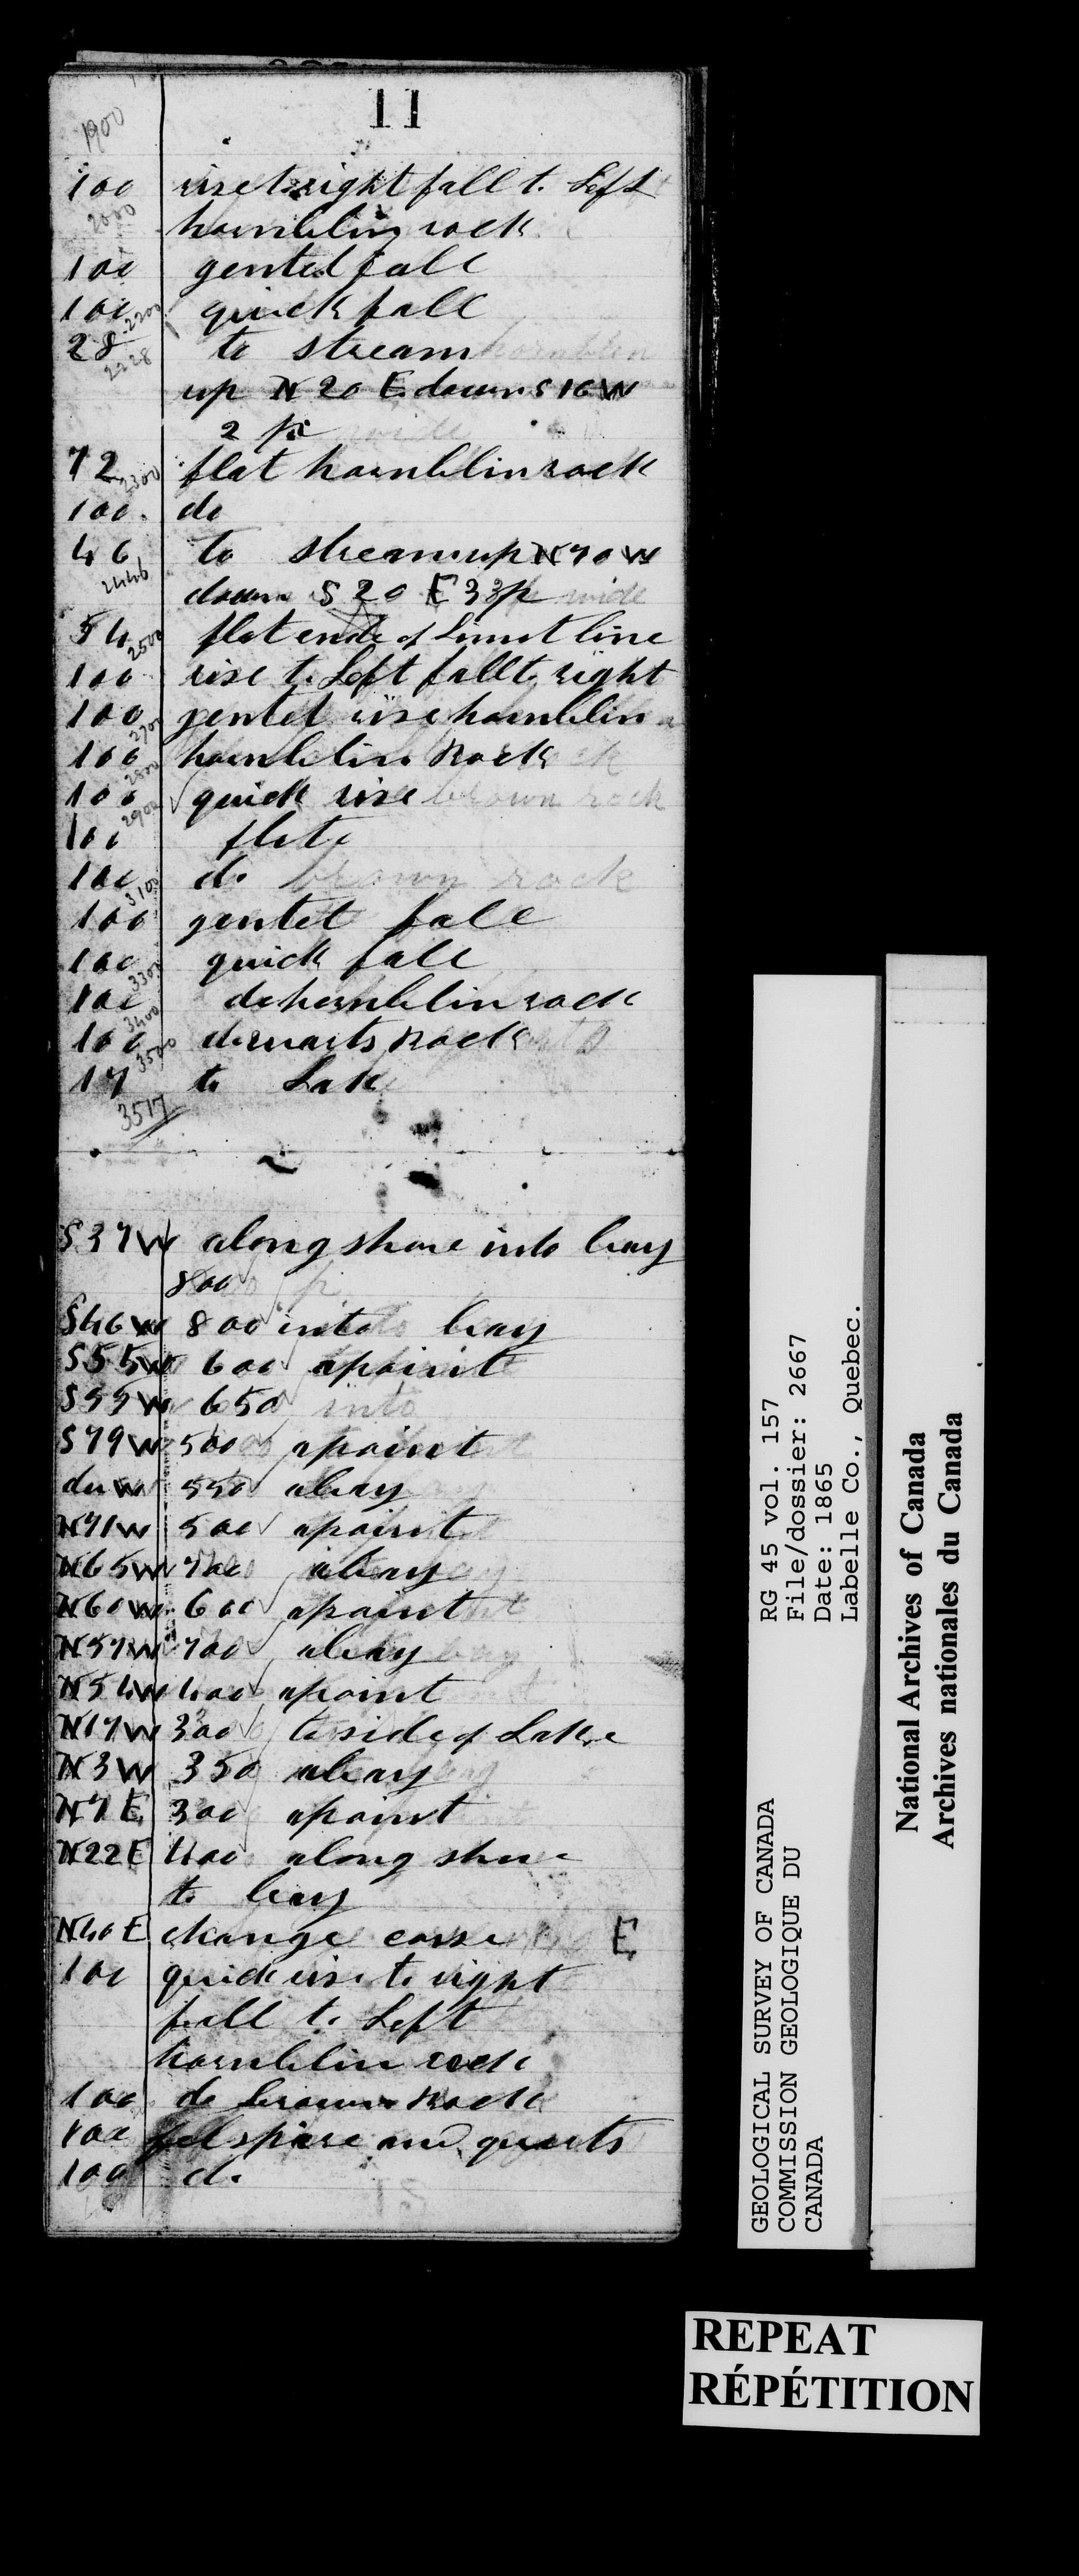 11
1900
100 rise to right fall to Left
2000 hornblin rock
100 gentel fall
100 quick fall
2200
28 to stream hornblin
2228
up N 20 E down S 10 W
2 p wide
72 flat hornblin rock
2300
100 do
46 to stream up N 70 W
2446
down S 20 E 33 p wide
54 flat ende of Limot line
2500
100 rise to Left fall to right
100 gentel rise hornblin
2700
100 hornblin Rock
2800
100 quick rise brown rock
2900
100 flate
100 do brown rock
3100
100 gentel fall
100 quick fall
3300
100 do hornblin rock
3400
100 do quarts Rock
3500
17 to Lak
3517
S37W along shore into bay
800 p
S46W 800 into bay
S55W 600 apoint
S55W 650 into
S79W 500 apoint
du W 550 abay
N71W 500 apoint
N65W 700 abay
N60W 600 apoint
N57W 700 abay
N54W 400 apoint
N17W 300 to side of Lake
N3W 350 abay
N7E 300 apoint
N22E 400 along shore
to bay
N40E change corse E
100 quick rise to right
fall to Left
hornblin rock
100 do brown Rock
100 felspare and quarts
100 do
RG 45 vol. 157
File/dossier: 2667
Date: 1865
Labelle Co., Quebec.
GEOLOGICAL SURVEY OF CANADA
COMMISSION GEOLOGIQUE DU
CANADA
National Archives of Canada
Archives nationales du Canada
REPEAT
RÉPÉTITION